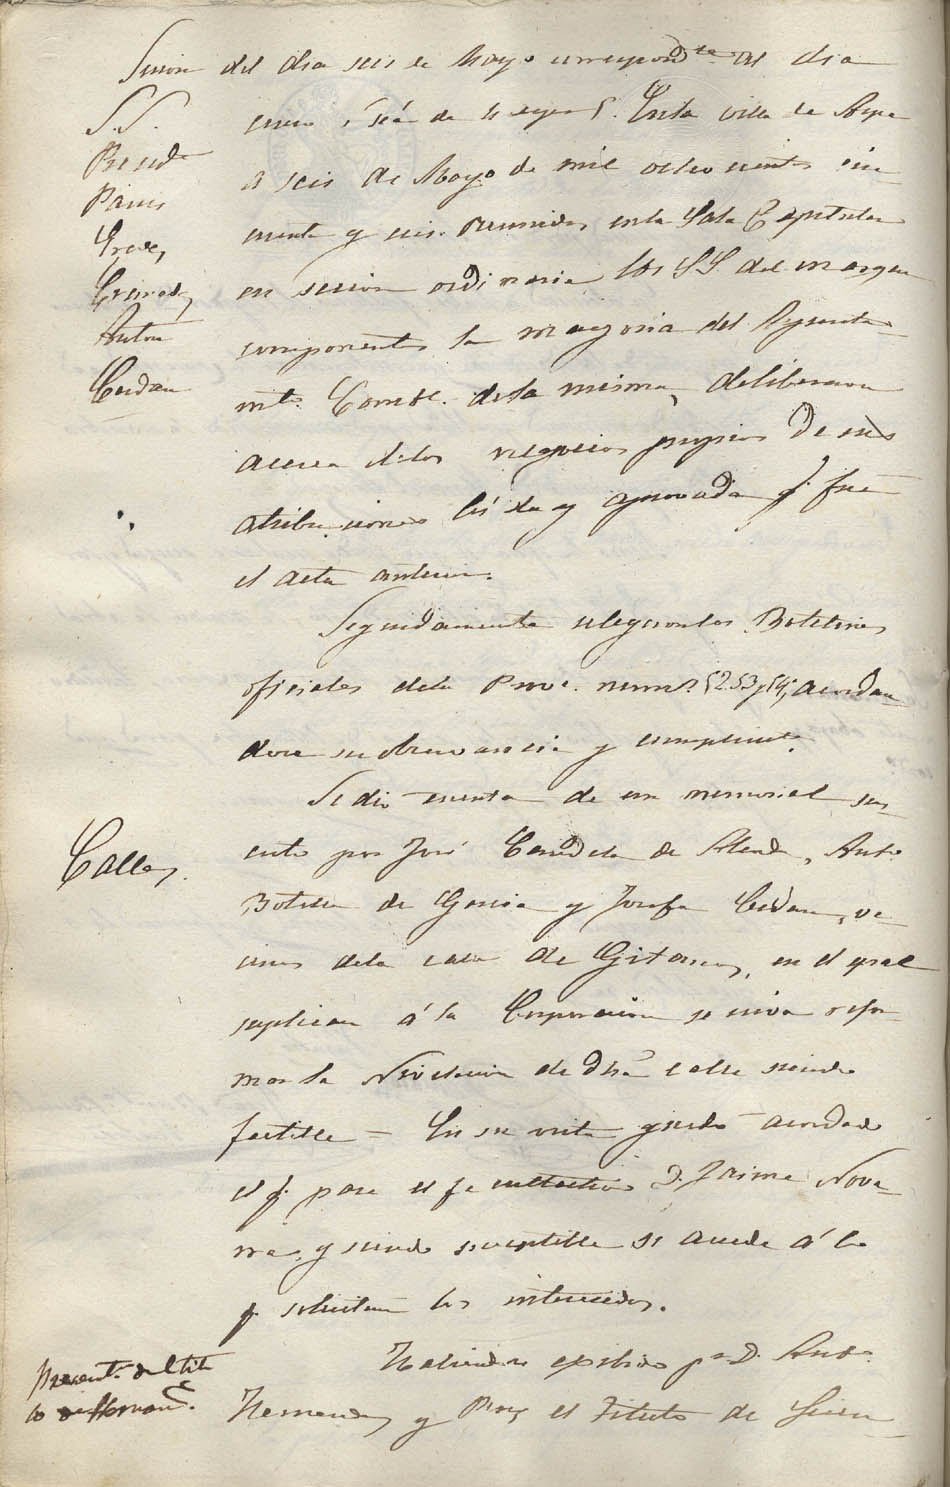 Sesion del dia seis de Mayo correspond.te al dia
S.S.
Presid.te
Anton
Cerdan
En la villa de Aspe
á seis de Mayo de mil ochocientos cin-
cuenta y seis. Reunidos en la Sala Capitular
en sesion ordinaria los SS. del margen
componentes la mayoria del Ayunta-
mto. Const. de la misma, deliberaron
acerca de los negocios propios de sus
atribuciones leida y aprovada q. fue
el acta anterior.
Seguidamente se leyeron los Boletines
oficiales de la Prov.a num.s 52. 53 y 54, acordan-
dose su observancia y cumplim.to
Se dio cuenta de un memorial sus-
Calles.
crito por José de Ant.o
Botella de Garcia y Josefa Cerdan, ve-
cinos de la calle de Gitanos, en el qual
suplican á la Corporacion se sirva refor-
mar la Nivelacion de dha calle siendo
factible = En su vista quedo acordado
el q. pase el facultativo D. Jaime Nova-
y siendo susceptible se acceda á lo
q. solicitan los interesados.
Habiendose exibido p.r D. Ant.o
Present.n del titu
lo de Hernand.z
Hernandez y el titulo de